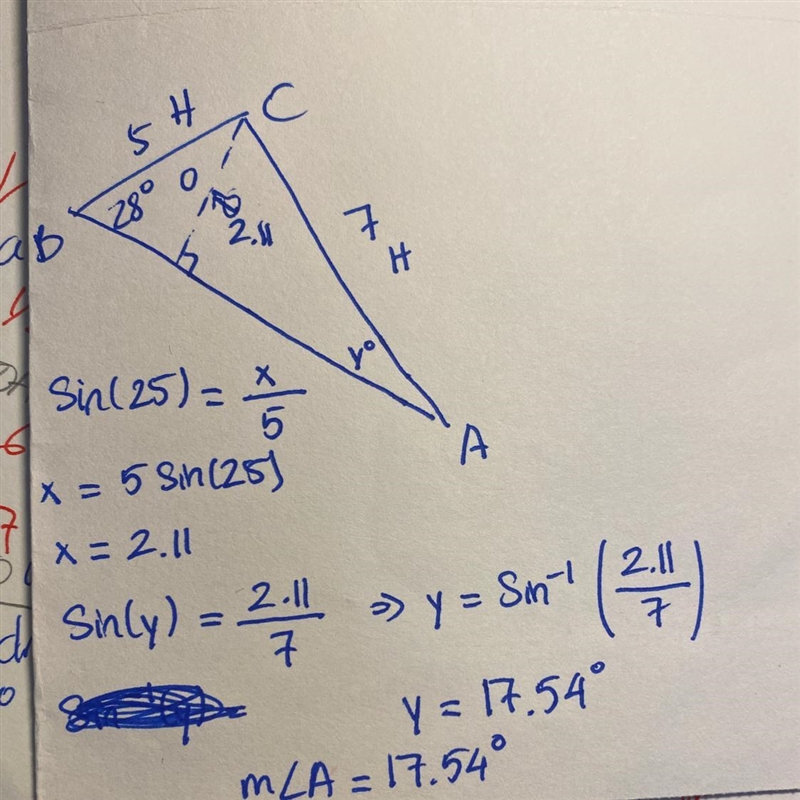 5 H C
28° O
B 2.11
7 H
y°
A
Sin(25) = x/5
x = 5 Sin(25)
x = 2.11
Sin(y) = 2.11/7 ⇒ y = Sin⁻¹ (2.11/7)
y = 17.54°
m∠A = 17.54°